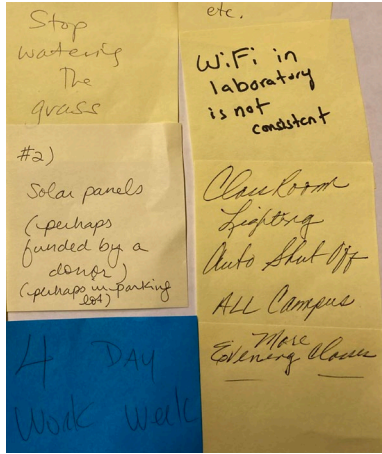 Stop
watering
The
grass
etc.
WiFi in
laboratory
is not
consistent
#2)
Solar panels
(perhaps
funded by a
donor)
(perhaps in parking
lot)
ClassRoom
Lighting
Auto Shut Off
ALL Campus
4 DAY
Work Week
More
Evening Classes